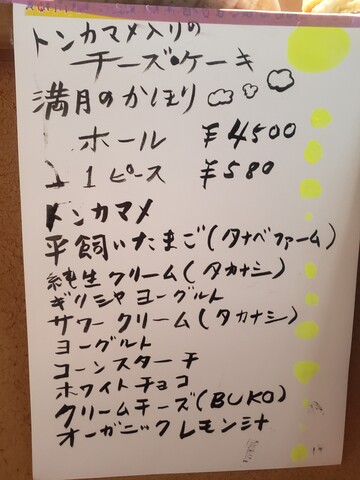 トンカマメ入りの
チーズ・ケーキ
満月のかほり
ホール ¥4500
1ピース ¥580
トンカマメ
平飼いたまご(タナベファーム)
純生クリーム(タカナシ)
ギリシャヨーグルト
サワークリーム(タカナシ)
ヨーグルト
コーンスターチ
ホワイトチョコ
クリームチーズ(BUKO)
オーガニックレモン